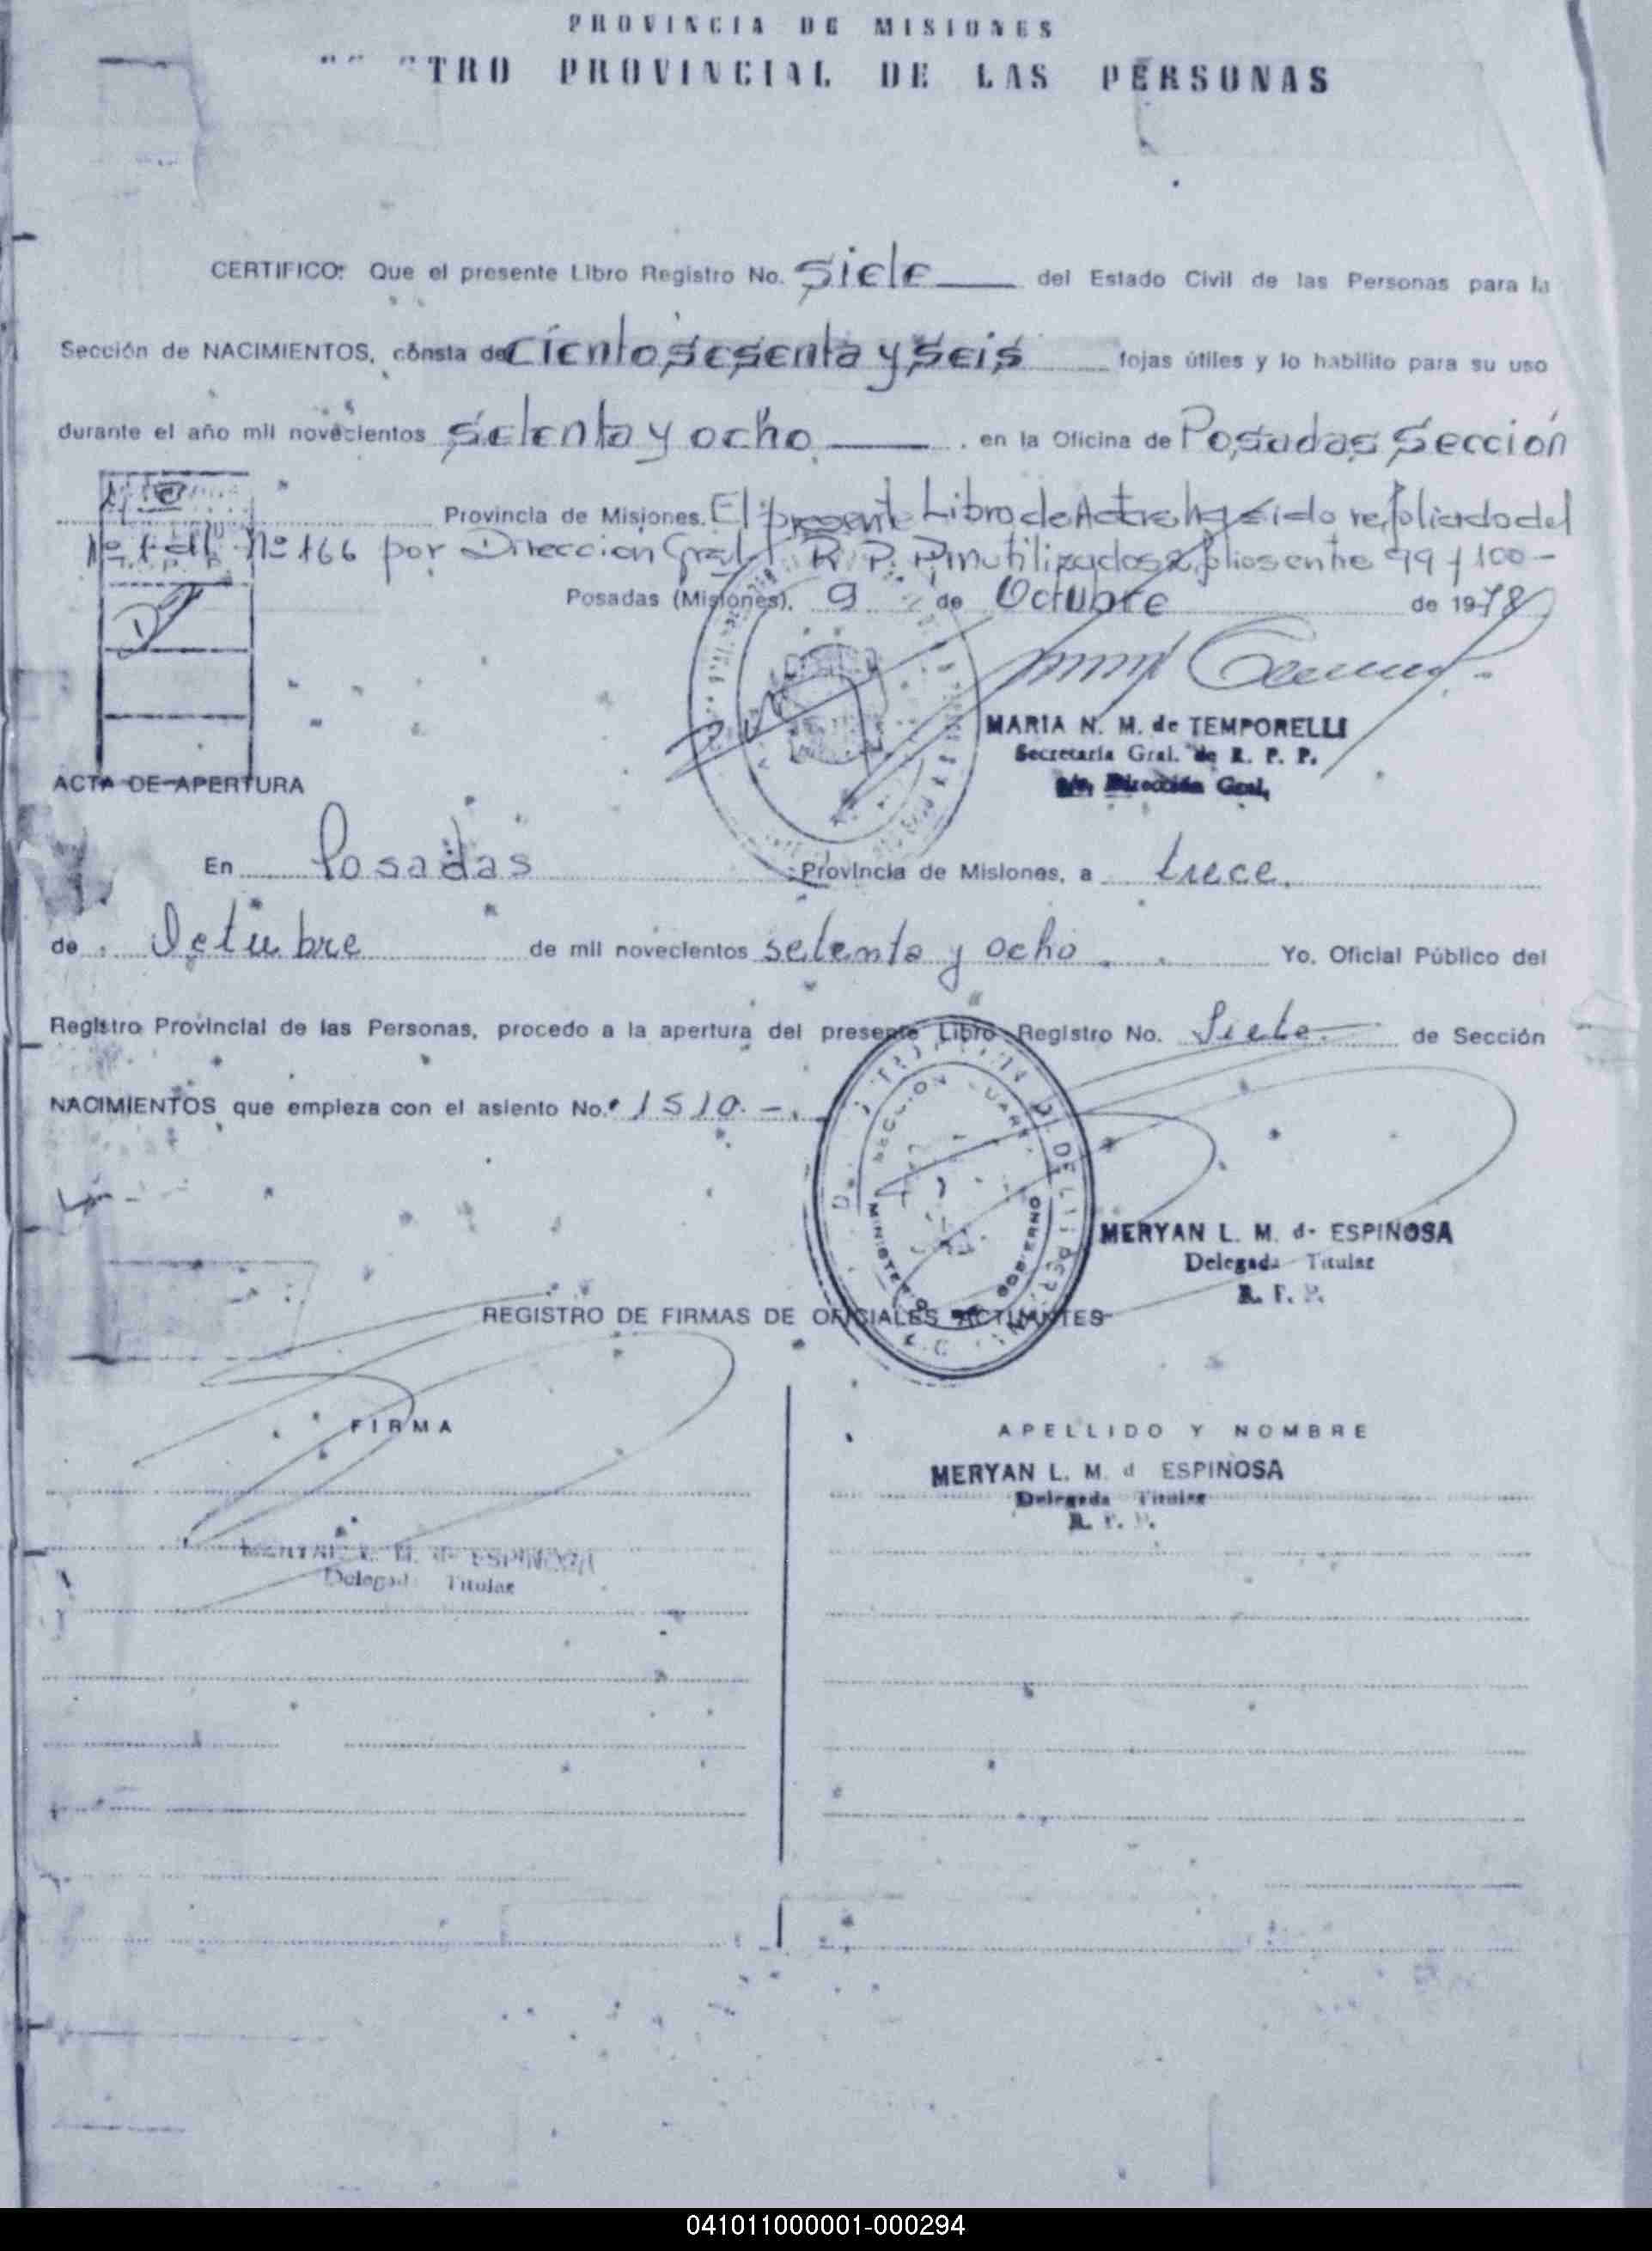 PROVINCIA DE MISIONES
TRO PROVINCIAL DE LAS PERSONAS
CERTIFICO: Que el presente Libro Registro No. Siete del Estado Civil de las Personas para la
Sección de NACIMIENTOS, consta de Ciento sesenta y seis fojas útiles y lo habilito para su uso
durante el año mil novecientos setenta y ocho en la Oficina de Posadas Sección
Provincia de Misiones. El presente Libro de Actas ha sido refoliado del
Nº 1 al Nº 166 por Direccion Gral. R. P. P. inutilizados 2 folios entre 99 y 100 -
Posadas (Misiones), 9 de Octubre de 1978
MARIA N. M. de TEMPORELLI
Secretaria Gral. de R. P. P.
Dirección Gral,
ACTA DE APERTURA
En Posadas Provincia de Misiones, a trece
de Octubre de mil novecientos setenta y ocho. Yo, Oficial Público del
Registro Provincial de las Personas, procedo a la apertura del presente Libro Registro No. Siete de Sección
NACIMIENTOS que empieza con el asiento No. 1510. -
MINISTERIO DE GOBIERNO
MERYAN L. M. d- ESPINOSA
Delegada Titular
R. P. P.
REGISTRO DE FIRMAS DE OFICIALES ACTUANTES
FIRMA
APELLIDO Y NOMBRE
MERYAN L. M. d ESPINOSA
Delegada Titular
R. P. P.
MERYAN L. M. d- ESPINOSA
Delegada Titular
041011000001-000294